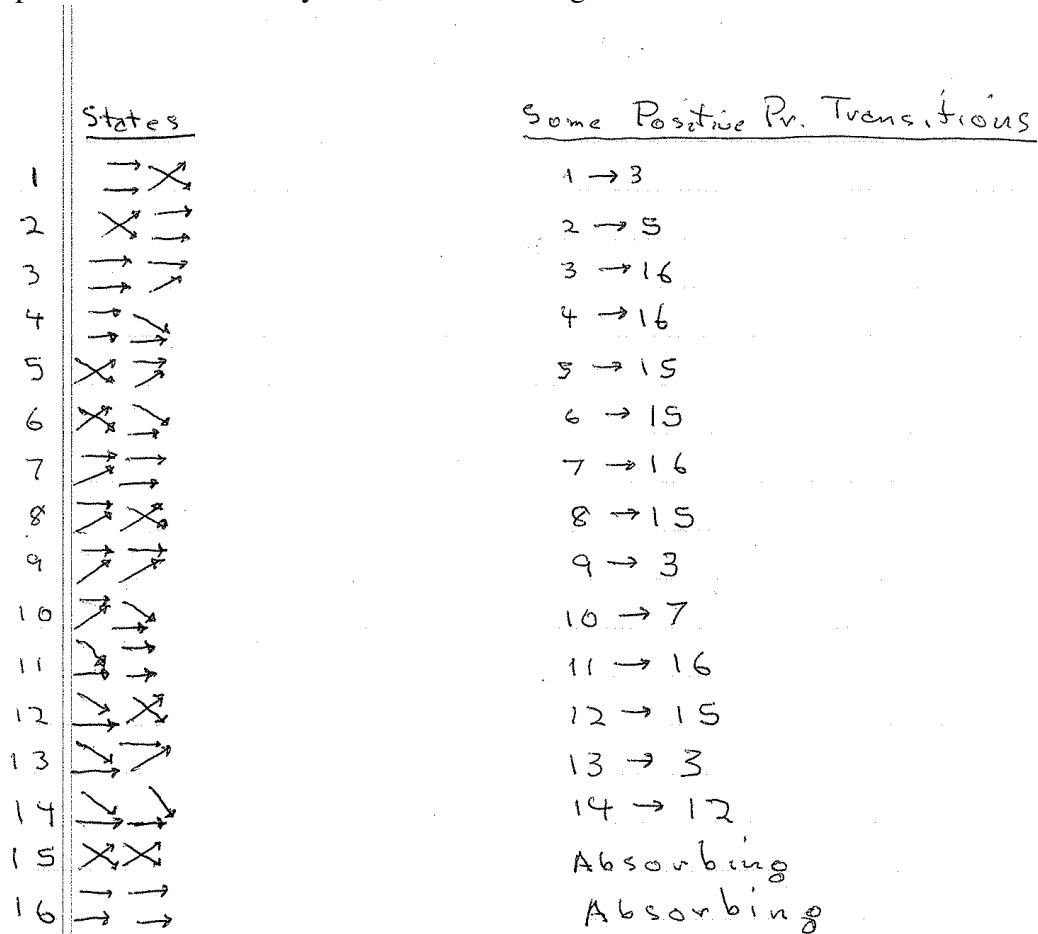 States Some Positive Pr. Transitions
1 1 → 3
2 2 → 5
3 3 → 16
4 4 → 16
5 5 → 15
6 6 → 15
7 7 → 16
8 8 → 15
9 9 → 3
10 10 → 7
11 11 → 16
12 12 → 15
13 13 → 3
14 14 → 12
15 Absorbing
16 Absorbing